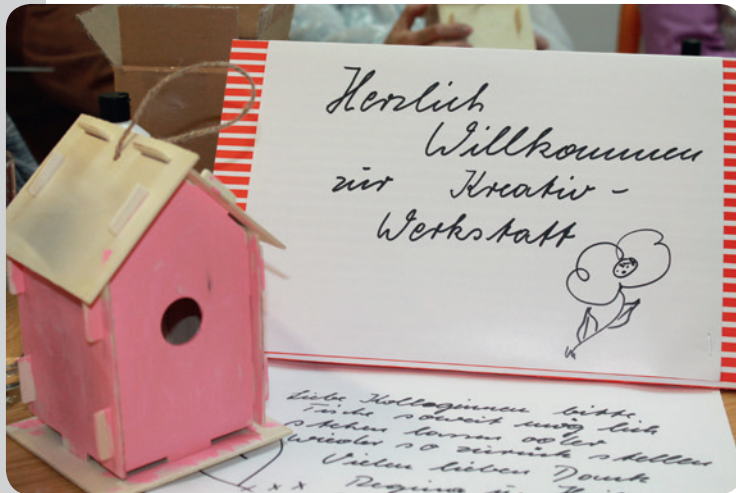 Herzlich
Willkommen
zur Kreativ-
Werkstatt
Liebe Kolleginnen bitte
Tische soweit möglich
stehen lassen oder
wieder so zurück stellen
Vielen lieben Dank
Regina